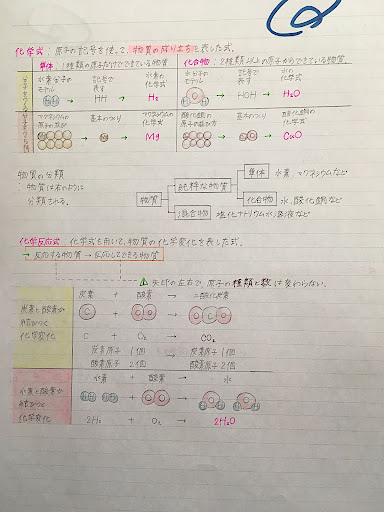 化学式：原子の記号を使って、物質の成り立ちを表した式。
単体：1種類の原子だけでできている物質 化合物：2種類以上の原子からできている物質
水素分子のモデル → 記号で表す → 水素の化学式 水分子のモデル → 記号で表す → 水の化学式
HH → HH → H₂ HOH → HOH → H₂O
マグネシウムの原子の並び → 基本のつくり → マグネシウムの化学式 酸化銅の原子の並び方 → 基本のつくり → 酸化銅の化学式
Mg CuO
物質の分類
：物質は右のように
分類される。
物質
純粋な物質
単体 水素、マグネシウムなど
化合物 水、酸化銅など
混合物 塩化ナトリウム水溶液など
化学反応式 化学式を用いて、物質の化学変化を表した式。
→ 反応する物質 → 反応してできる物質
矢印の左右で、原子の種類と数は変わらない。
炭素と酸素が
結びつく
化学変化
炭素 + 酸素 → 二酸化炭素
C + OO → OCO
C + O₂ → CO₂
炭素原子 1個 → 炭素原子 1個
酸素原子 2個 酸素原子 2個
水素と酸素が
結びつく
化学変化
水素 + 酸素 → 水
HH HH + OO → HOH HOH
2H₂ + O₂ → 2H₂O